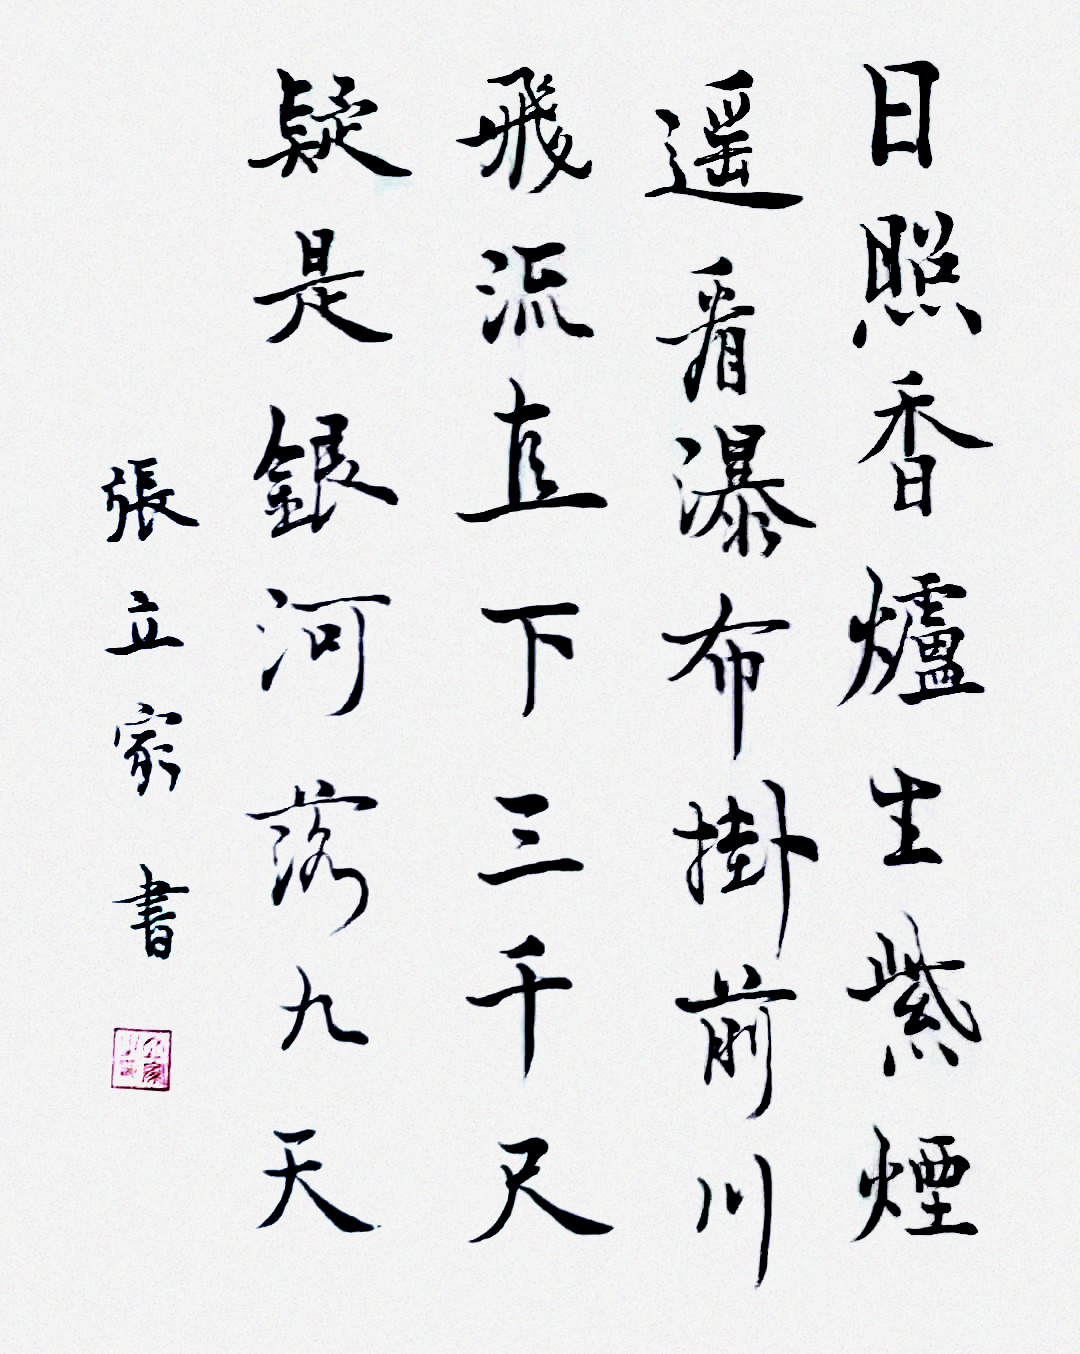 日照香爐生紫煙
遥看瀑布掛前川
飛流直下三千尺
疑是銀河落九天
張立家書